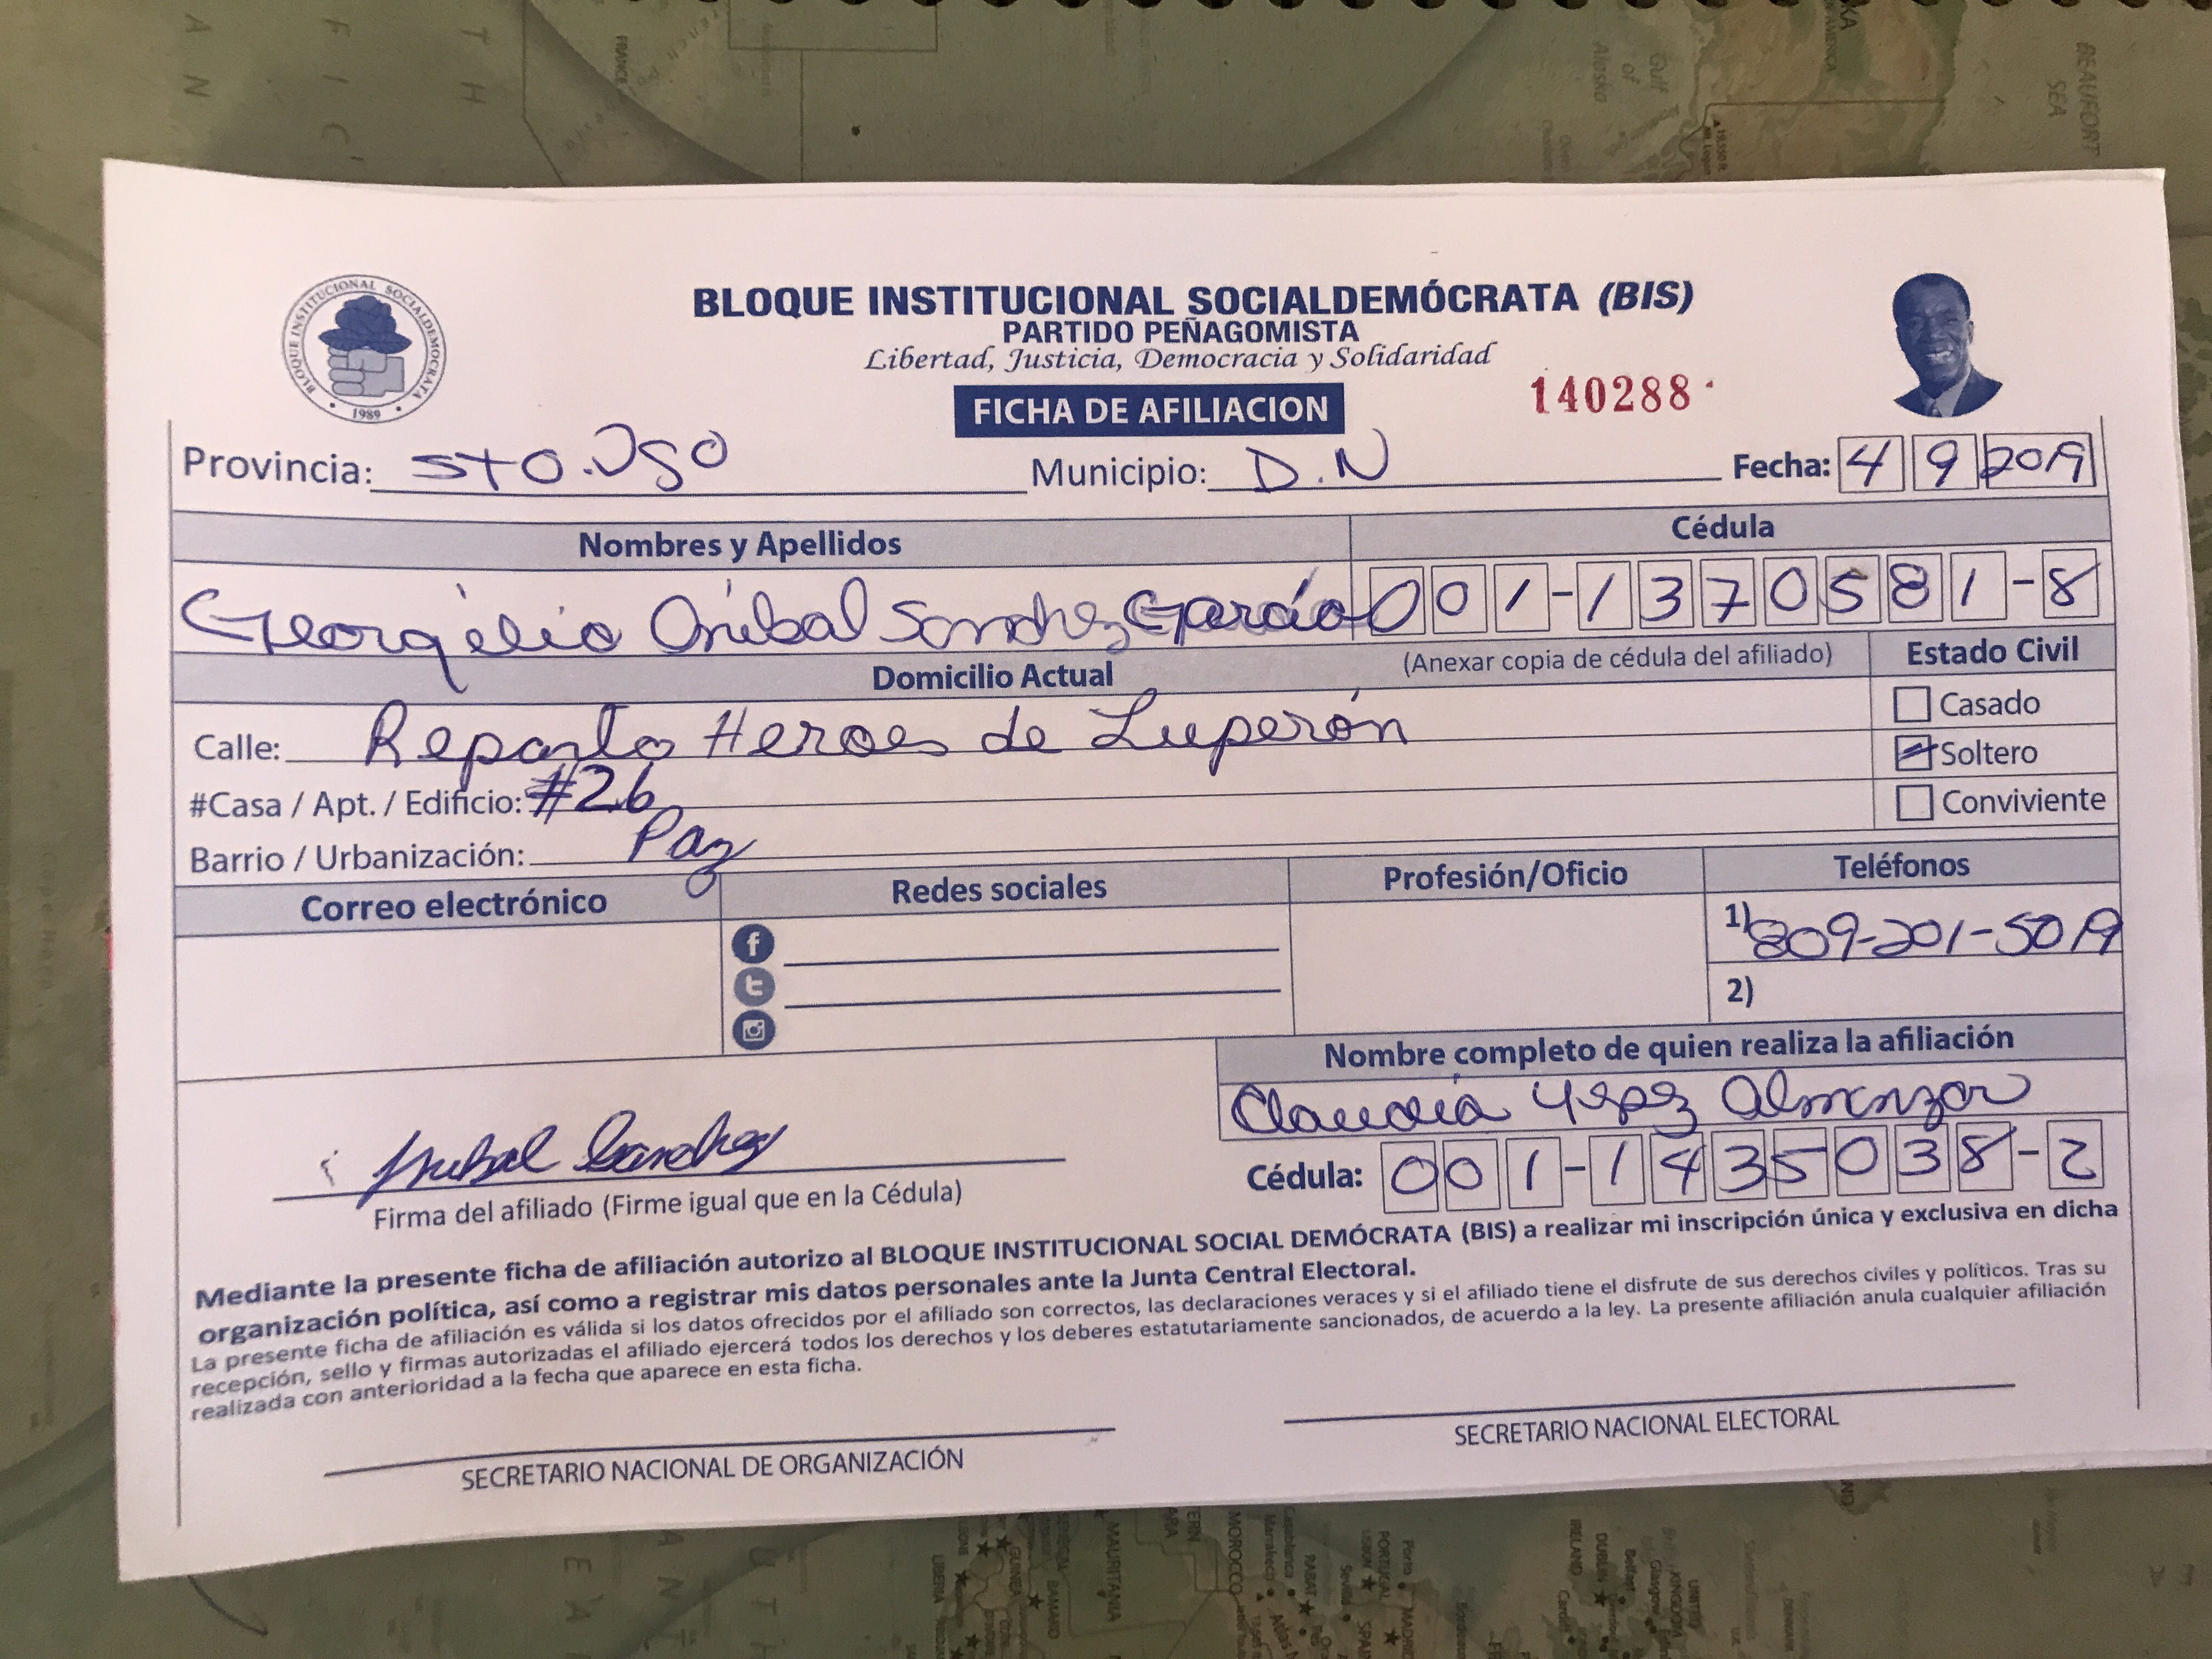 BLOQUE INSTITUCIONAL SOCIALDEMÓCRATA
1989
BLOQUE INSTITUCIONAL SOCIALDEMÓCRATA (BIS)
PARTIDO PEÑAGOMISTA
Libertad, Justicia, Democracia y Solidaridad
FICHA DE AFILIACION
140288
Provincia: STO. DGO Municipio: D.N Fecha: 4 9 2019
Nombres y Apellidos Cédula
Georgelio Anibal Sanchez Garcia 001-1370581-8
Domicilio Actual (Anexar copia de cédula del afiliado) Estado Civil
Calle: Reparto Heroes de Luperón
Casado
Soltero
#Casa / Apt. / Edificio: #26
Conviviente
Barrio / Urbanización: Paz
Correo electrónico Redes sociales Profesión/Oficio Teléfonos
1) 809-201-5019
2)
Nombre completo de quien realiza la afiliación
Claudia Yepez Almanzar
Anibal Sanchez
Cédula: 001-1435038-2
Firma del afiliado (Firme igual que en la Cédula)
Mediante la presente ficha de afiliación autorizo al BLOQUE INSTITUCIONAL SOCIAL DEMÓCRATA (BIS) a realizar mi inscripción única y exclusiva en dicha
organización política, así como a registrar mis datos personales ante la Junta Central Electoral.
La presente ficha de afiliación es válida si los datos ofrecidos por el afiliado son correctos, las declaraciones veraces y si el afiliado tiene el disfrute de sus derechos civiles y políticos. Tras su
recepción, sello y firmas autorizadas el afiliado ejercerá todos los derechos y los deberes estatutariamente sancionados, de acuerdo a la ley. La presente afiliación anula cualquier afiliación
realizada con anterioridad a la fecha que aparece en esta ficha.
SECRETARIO NACIONAL DE ORGANIZACIÓN
SECRETARIO NACIONAL ELECTORAL